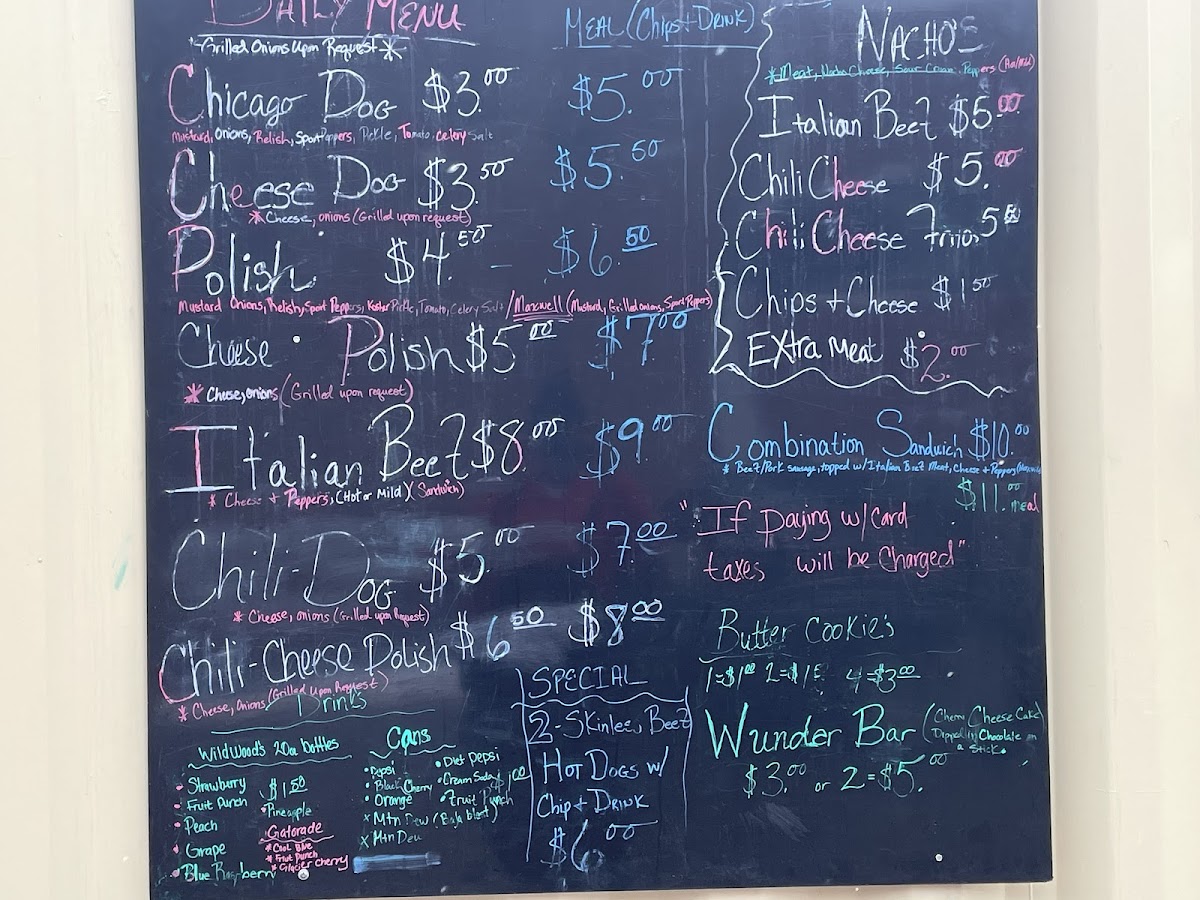 DAILY MENU
MEAL (Chips + DRINK)
Grilled Onions Upon Request *
Chicago Dog $3.00 $5.00
Mustard, Onions, Relish, Sport Peppers, Pickle, Tomato, Celery Salt
Cheese Dog $3.50 $5.50
* Cheese, onions (Grilled upon request)
Polish $4.50 – $6.50
Mustard Onions, Relish, Sport Peppers, Kosher Pickle, Tomato, Celery Salt / Maxwell (Mustard, Grilled onions, Sport Peppers)
Cheese Polish $5.00 $7.00
* Cheese, onions (Grilled upon request)
Italian Beef $8.00 $9.00
* Cheese + Peppers, (Hot or Mild) (Sandwich)
Chili-Dog $5.00 $7.00
* Cheese, onions (Grilled upon Request)
Chili-Cheese Polish $6.50 $8.00
* Cheese, Onions (Grilled Upon Request)
Drinks
Wildwood's 20oz bottles
Strawberry $1.50
Fruit Punch
Peach
Grape
Blue Raspberry
Pineapple
Gatorade
* Cool Blue
* Fruit Punch
* Glacier Cherry
Cans
• Pepsi
• Black Cherry
• Orange
x Mtn Dew (Baja blast)
x Mtn Dew
• Diet Pepsi
• Cream Soda $1.00
• Fruit Punch
SPECIAL
2-Skinless Beef
Hot Dogs w/
Chip + Drink
$6.00
NACHO'S
* Meat, Nacho Cheese, Sour Cream, Peppers (Hot/Mild)
Italian Beef $5.00
Chili Cheese $5.00
Chili Cheese Fritos 5.50
Chips + Cheese $1.50
EXtra Meat $2.00
Combination Sandwich $10.00
* Beef/Pork sausage, topped w/ Italian Beef Meat, Cheese + Peppers
$11.00 meal
"If paying w/ card
taxes will be charged"
Butter Cookie's
1=$1.00 2=$1.5 4=$3.00
Wunder Bar (Cherry Cheese Cake
Dipped in Chocolate on
a Stick.
$3.00 or 2=$5.00